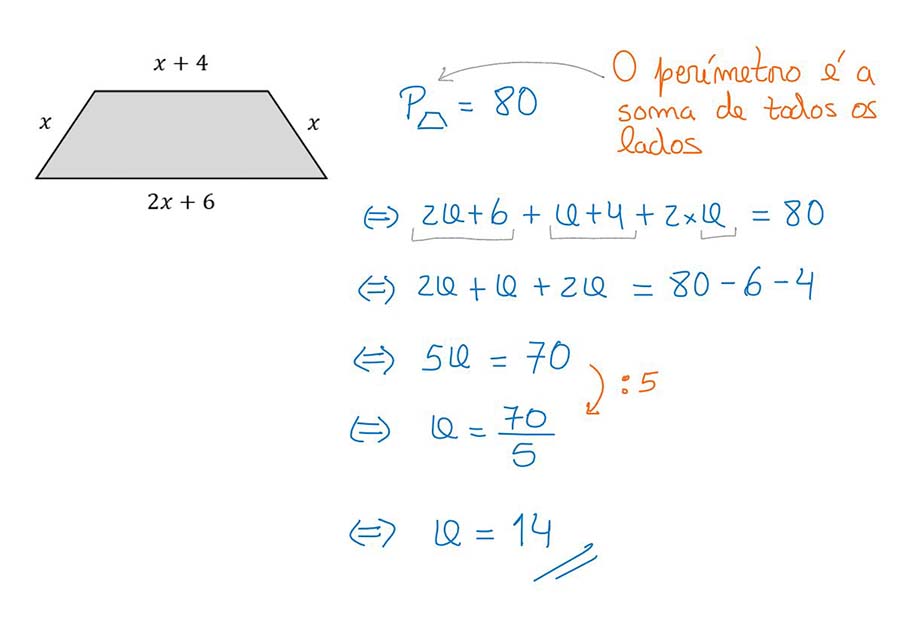 x + 4
x
x
2x + 6
P = 80
O perímetro é a
soma de todos os
lados
⇔ 2x+6 + x+4 + 2×x = 80
⇔ 2x + x + 2x = 80 - 6 - 4
⇔ 5x = 70
: 5
⇔ x = 70/5
⇔ x = 14